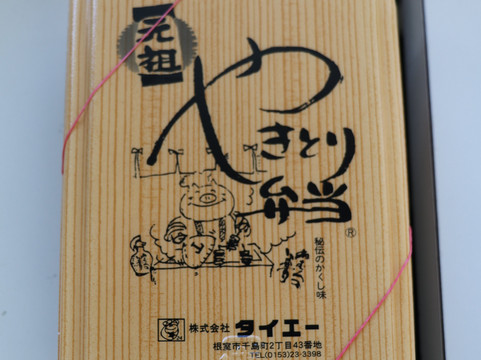 【元祖】
やきとり
弁当
®
秘伝のかくし味
株式会社 タイエー
根室市千島町2丁目43番地
TEL(0153)23-3398